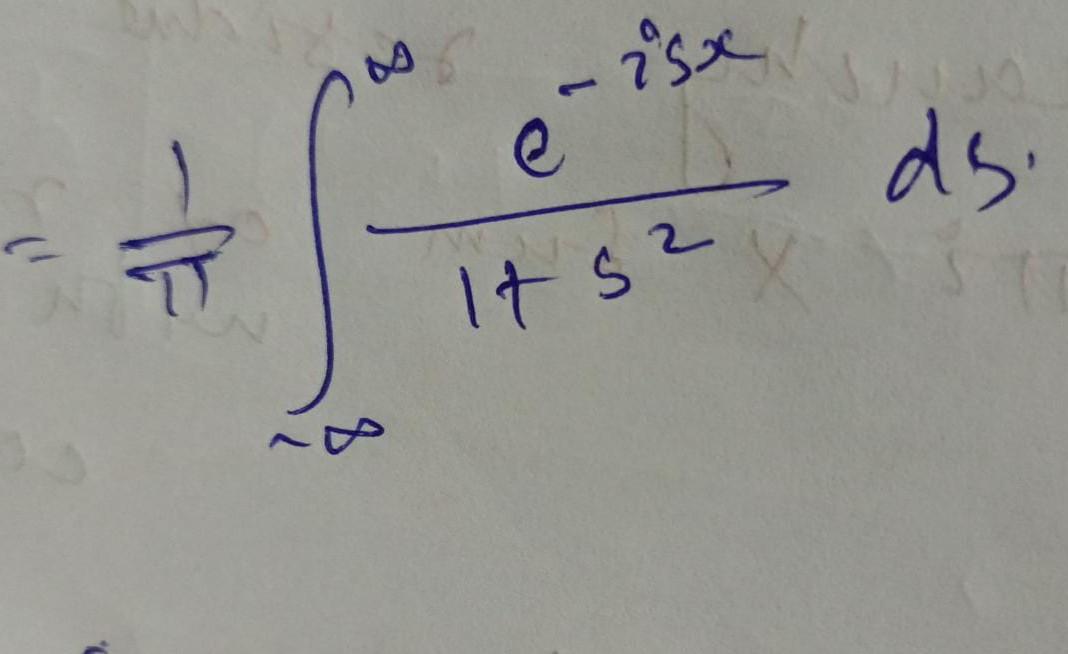 = 1/π ∫_{-∞}^{∞} e^{-isx}/(1+s²) ds.